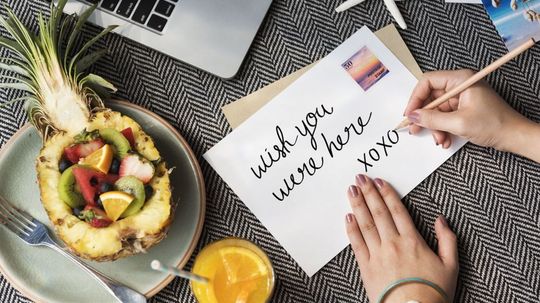 wish you
were here
xoxo